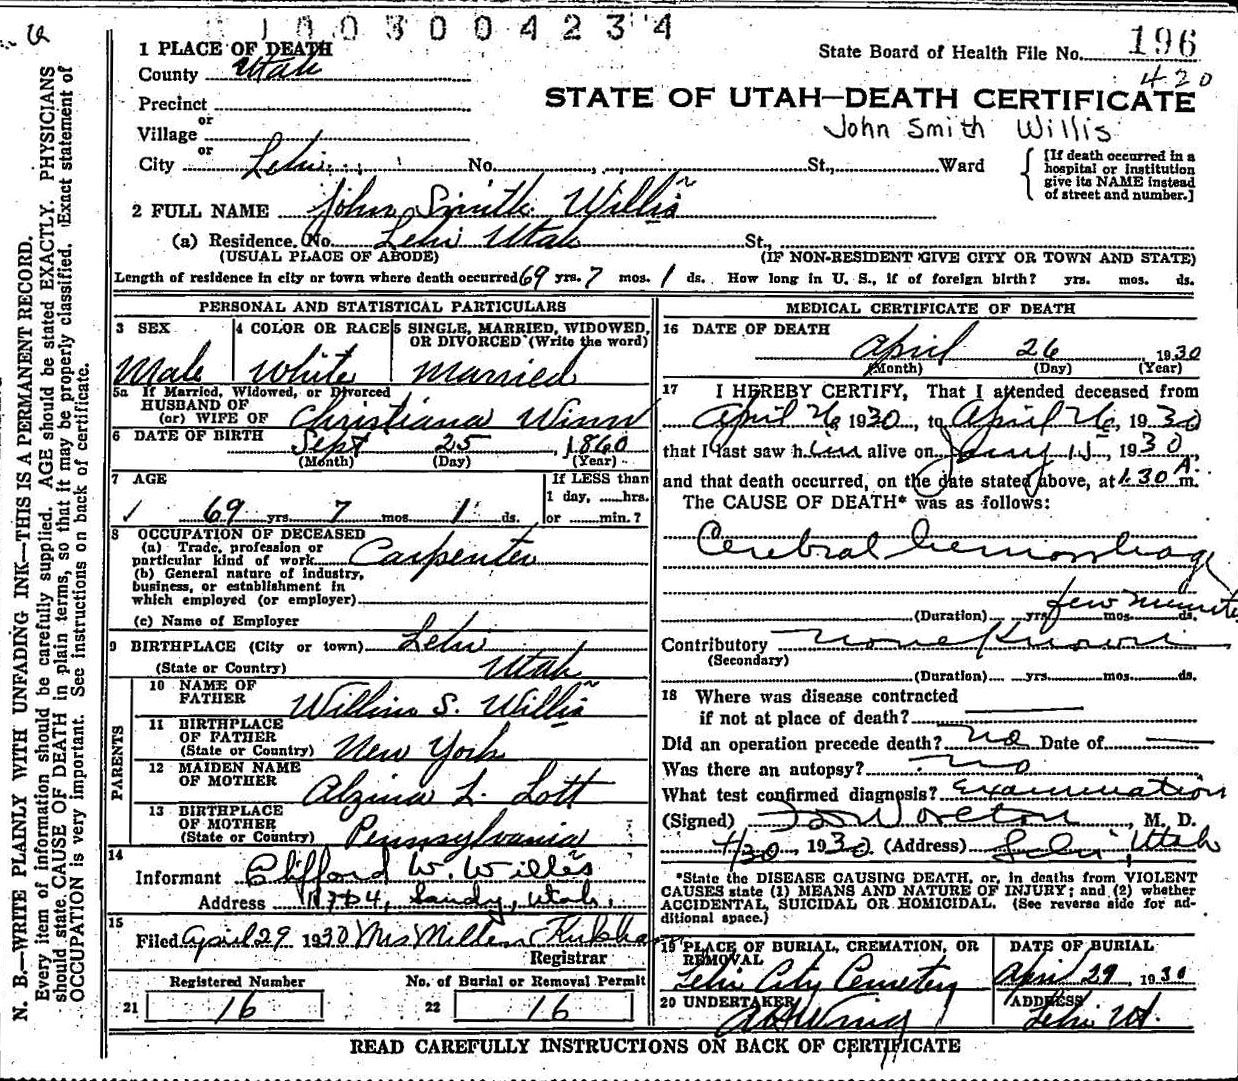 1003004234
1 PLACE OF DEATH
State Board of Health File No. 196
County Utah
420
Precinct
STATE OF UTAH—DEATH CERTIFICATE
or
Village
John Smith Willis
or
City Lehi No. St., Ward
[If death occurred in a
hospital or institution
give its NAME instead
of street and number.]
2 FULL NAME John Smith Willis
(a) Residence. No. Lehi Utah St.,
(USUAL PLACE OF ABODE) (IF NON-RESIDENT GIVE CITY OR TOWN AND STATE)
Length of residence in city or town where death occurred 69 yrs. 7 mos. 1 ds. How long in U. S., if of foreign birth? yrs. mos. ds.
PERSONAL AND STATISTICAL PARTICULARS
3 SEX
Male
4 COLOR OR RACE
White
5 SINGLE, MARRIED, WIDOWED,
OR DIVORCED (Write the word)
Married
5a If Married, Widowed, or Divorced
HUSBAND OF
(or) WIFE OF Christiana Winn
6 DATE OF BIRTH Sept 25, 1860
(Month) (Day) (Year)
7 AGE
69 yrs. 7 mos. 1 ds.
If LESS than
1 day, hrs.
or min.?
8 OCCUPATION OF DECEASED
(a) Trade, profession or
particular kind of work Carpenter
(b) General nature of industry,
business, or establishment in
which employed (or employer)
(c) Name of Employer
9 BIRTHPLACE (City or town) Lehi
(State or Country) Utah
PARENTS
10 NAME OF
FATHER William S. Willis
11 BIRTHPLACE
OF FATHER
(State or Country) New York
12 MAIDEN NAME
OF MOTHER Alzina L. Lott
13 BIRTHPLACE
OF MOTHER
(State or Country) Pennsylvania
14
Informant Clifford W. Willis
Address Sandy, Utah.
15
Filed April 29 1930 Mrs
Registrar
Registered Number
21 16
No. of Burial or Removal Permit
22 16
MEDICAL CERTIFICATE OF DEATH
16 DATE OF DEATH
April 26, 1930
(Month) (Day) (Year)
17 I HEREBY CERTIFY, That I attended deceased from
April 26 1930, to April 26, 1930
that I last saw him alive on 15, 1930,
and that death occurred, on the date stated above, at 1:30 A. m.
The CAUSE OF DEATH* was as follows:
Cerebral hemorrhage
few minutes
(Duration) yrs. mos. ds.
Contributory none known
(Secondary)
(Duration) yrs. mos. ds.
18 Where was disease contracted
if not at place of death?
Did an operation precede death? No Date of
Was there an autopsy? No
What test confirmed diagnosis? Examination
(Signed) M. D.
4/30, 1930 (Address) Lehi, Utah
*State the DISEASE CAUSING DEATH, or, in deaths from VIOLENT
CAUSES state (1) MEANS AND NATURE OF INJURY; and (2) whether
ACCIDENTAL, SUICIDAL OR HOMICIDAL. (See reverse side for ad-
ditional space.)
19 PLACE OF BURIAL, CREMATION, OR
REMOVAL
Lehi City Cemetery
DATE OF BURIAL
April 29, 1930
20 UNDERTAKER
ADDRESS
Lehi Ut.
READ CAREFULLY INSTRUCTIONS ON BACK OF CERTIFICATE
N. B.—WRITE PLAINLY WITH UNFADING INK—THIS IS A PERMANENT RECORD.
Every item of information should be carefully supplied. AGE should be stated EXACTLY. PHYSICIANS
should state CAUSE OF DEATH in plain terms, so that it may be properly classified. Exact statement of
OCCUPATION is very important. See instructions on back of certificate.